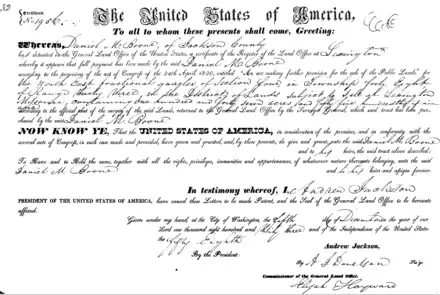 Certificate
No. 1986
The United States of America,
To all to whom these presents shall come, Greeting:
Whereas, Daniel M. Boone, of Jackson County
has deposited in the General Land Office of the United States, a certificate of the Register of the Land Office at Lexington
whereby it appears that full payment has been made by the said Daniel M. Boone
according to the provisions of the act of Congress of the 24th April, 1820, entitled "An act making further provision for the sale of the Public Lands," for
the North East fractional quarter of Section four, in Township forty eight
of Range thirty three, in the District of Lands subject to sale at Lexington
Missouri, containing one hundred and forty seven acres and forty five hundredths of an acre
according to the official plat of the survey of the said Lands, returned to the General Land Office by the Surveyor General, which said tract has been pur-
chased by the said Daniel M. Boone
NOW KNOW YE, That the UNITED STATES OF AMERICA, in consideration of the premises, and in conformity with the
several acts of Congress, in such case made and provided, have given and granted, and by these presents, do give and grant, unto the said Daniel M. Boone
and to his heirs, the said tract above described:
To Have and to Hold the same, together with all the rights, privileges, immunities and appurtenances, of whatsoever nature thereunto belonging, unto the said
Daniel M. Boone and to his heirs and assigns forever.
In testimony whereof, I, Andrew Jackson
PRESIDENT OF THE UNITED STATES OF AMERICA, have caused these Letters to be made Patent, and the Seal of the General Land Office to be hereunto
affixed.
Given under my hand, at the City of Washington, the fifth day of December in the year of our
Lord one thousand eight hundred and thirty three and of the Independence of the United States
the fifty eighth
Andrew Jackson,
By the President:
By A. J. Donelson Sec'y
Commissioner of the General Land Office.
Elijah Hayward